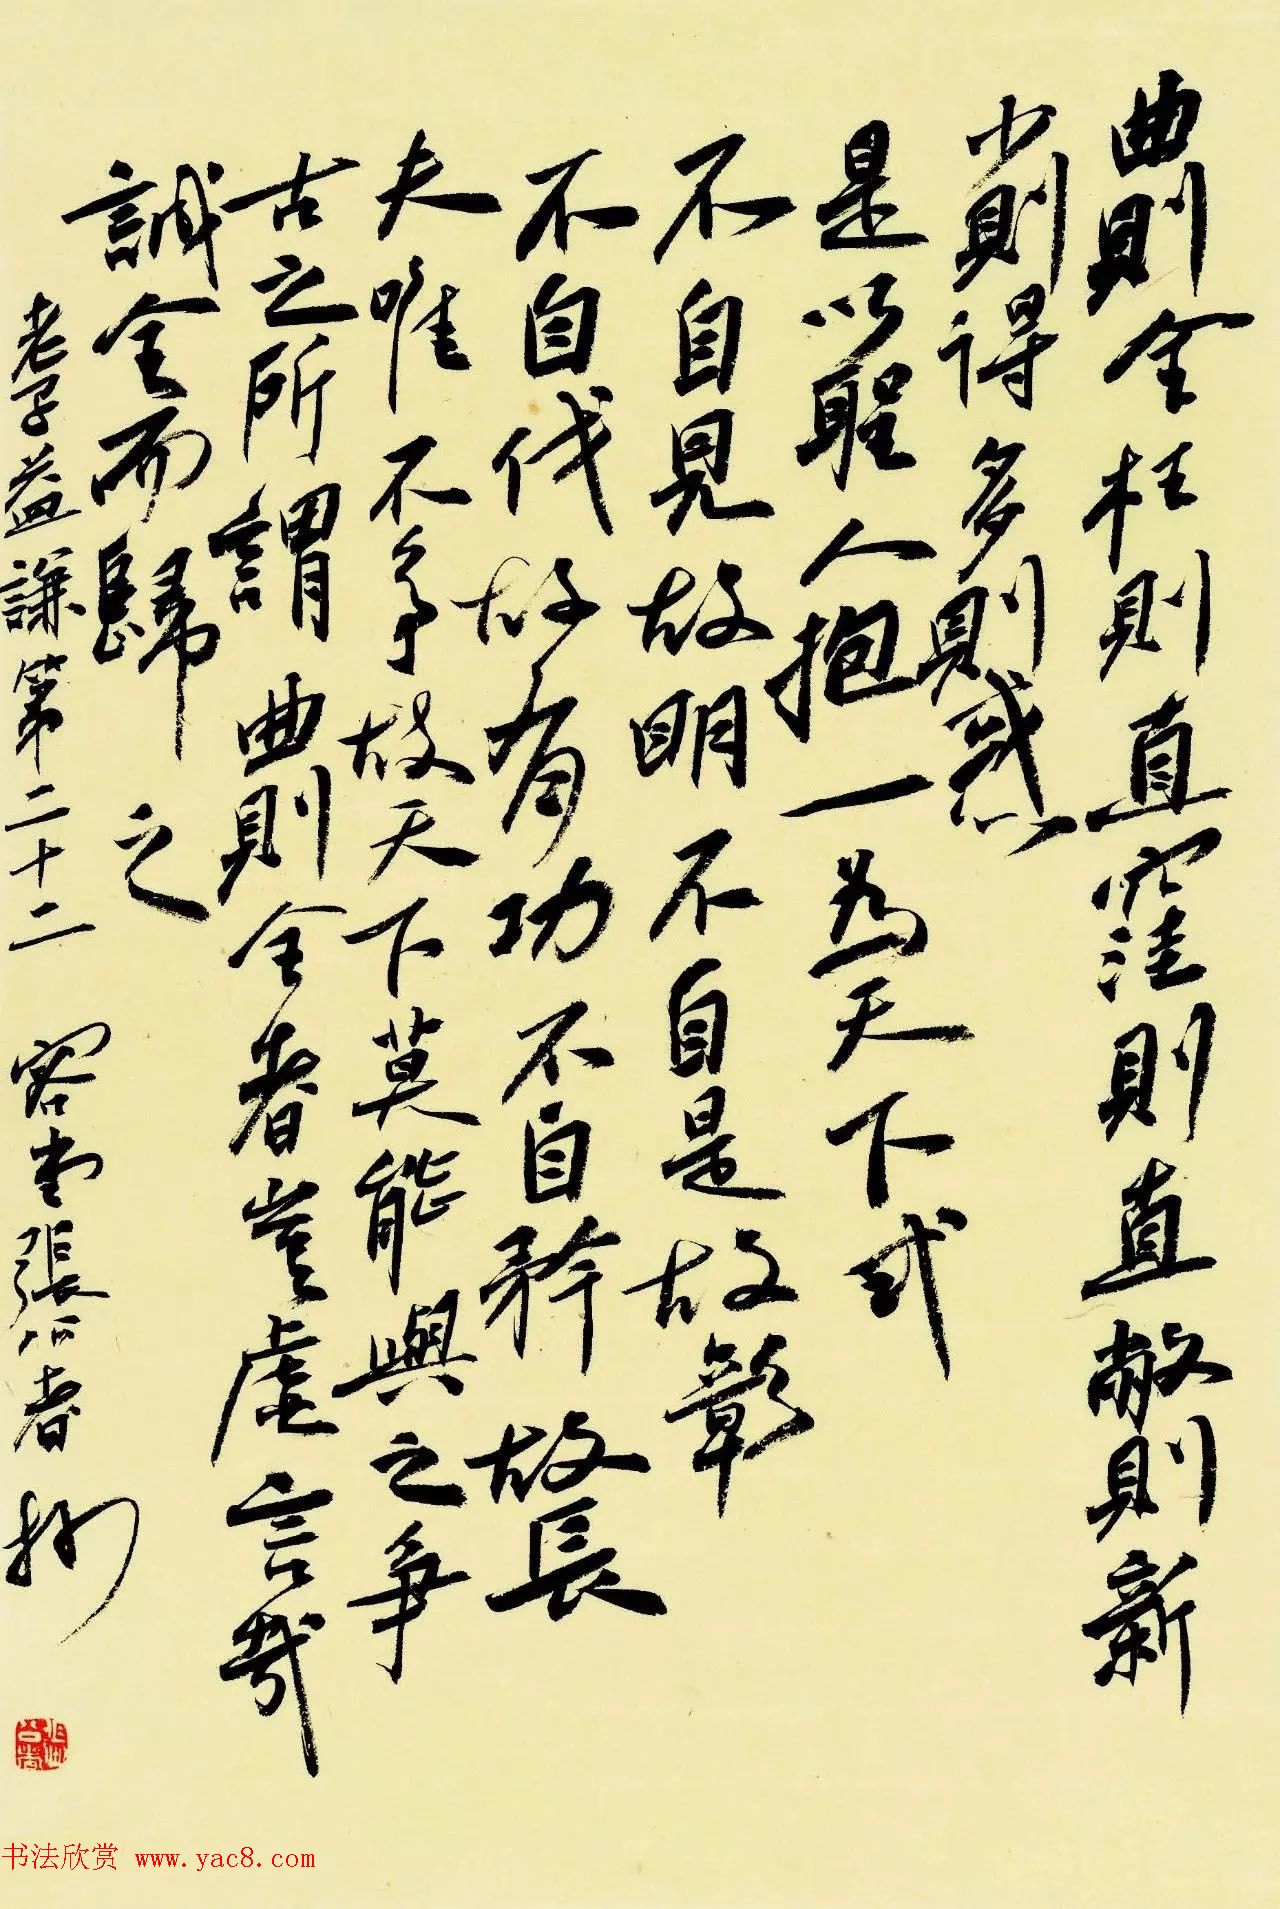 曲則全枉則直窪則直敝則新
少則得多則惑
是以聖人抱一為天下式
不自見故明不自是故彰
不自伐故有功不自矜故長
夫唯不爭故天下莫能與之爭
古之所謂曲則全者豈虛言哉
誠全而歸之
老子益謙第二十二 容堂張公者
书法欣赏 www.yac8.com